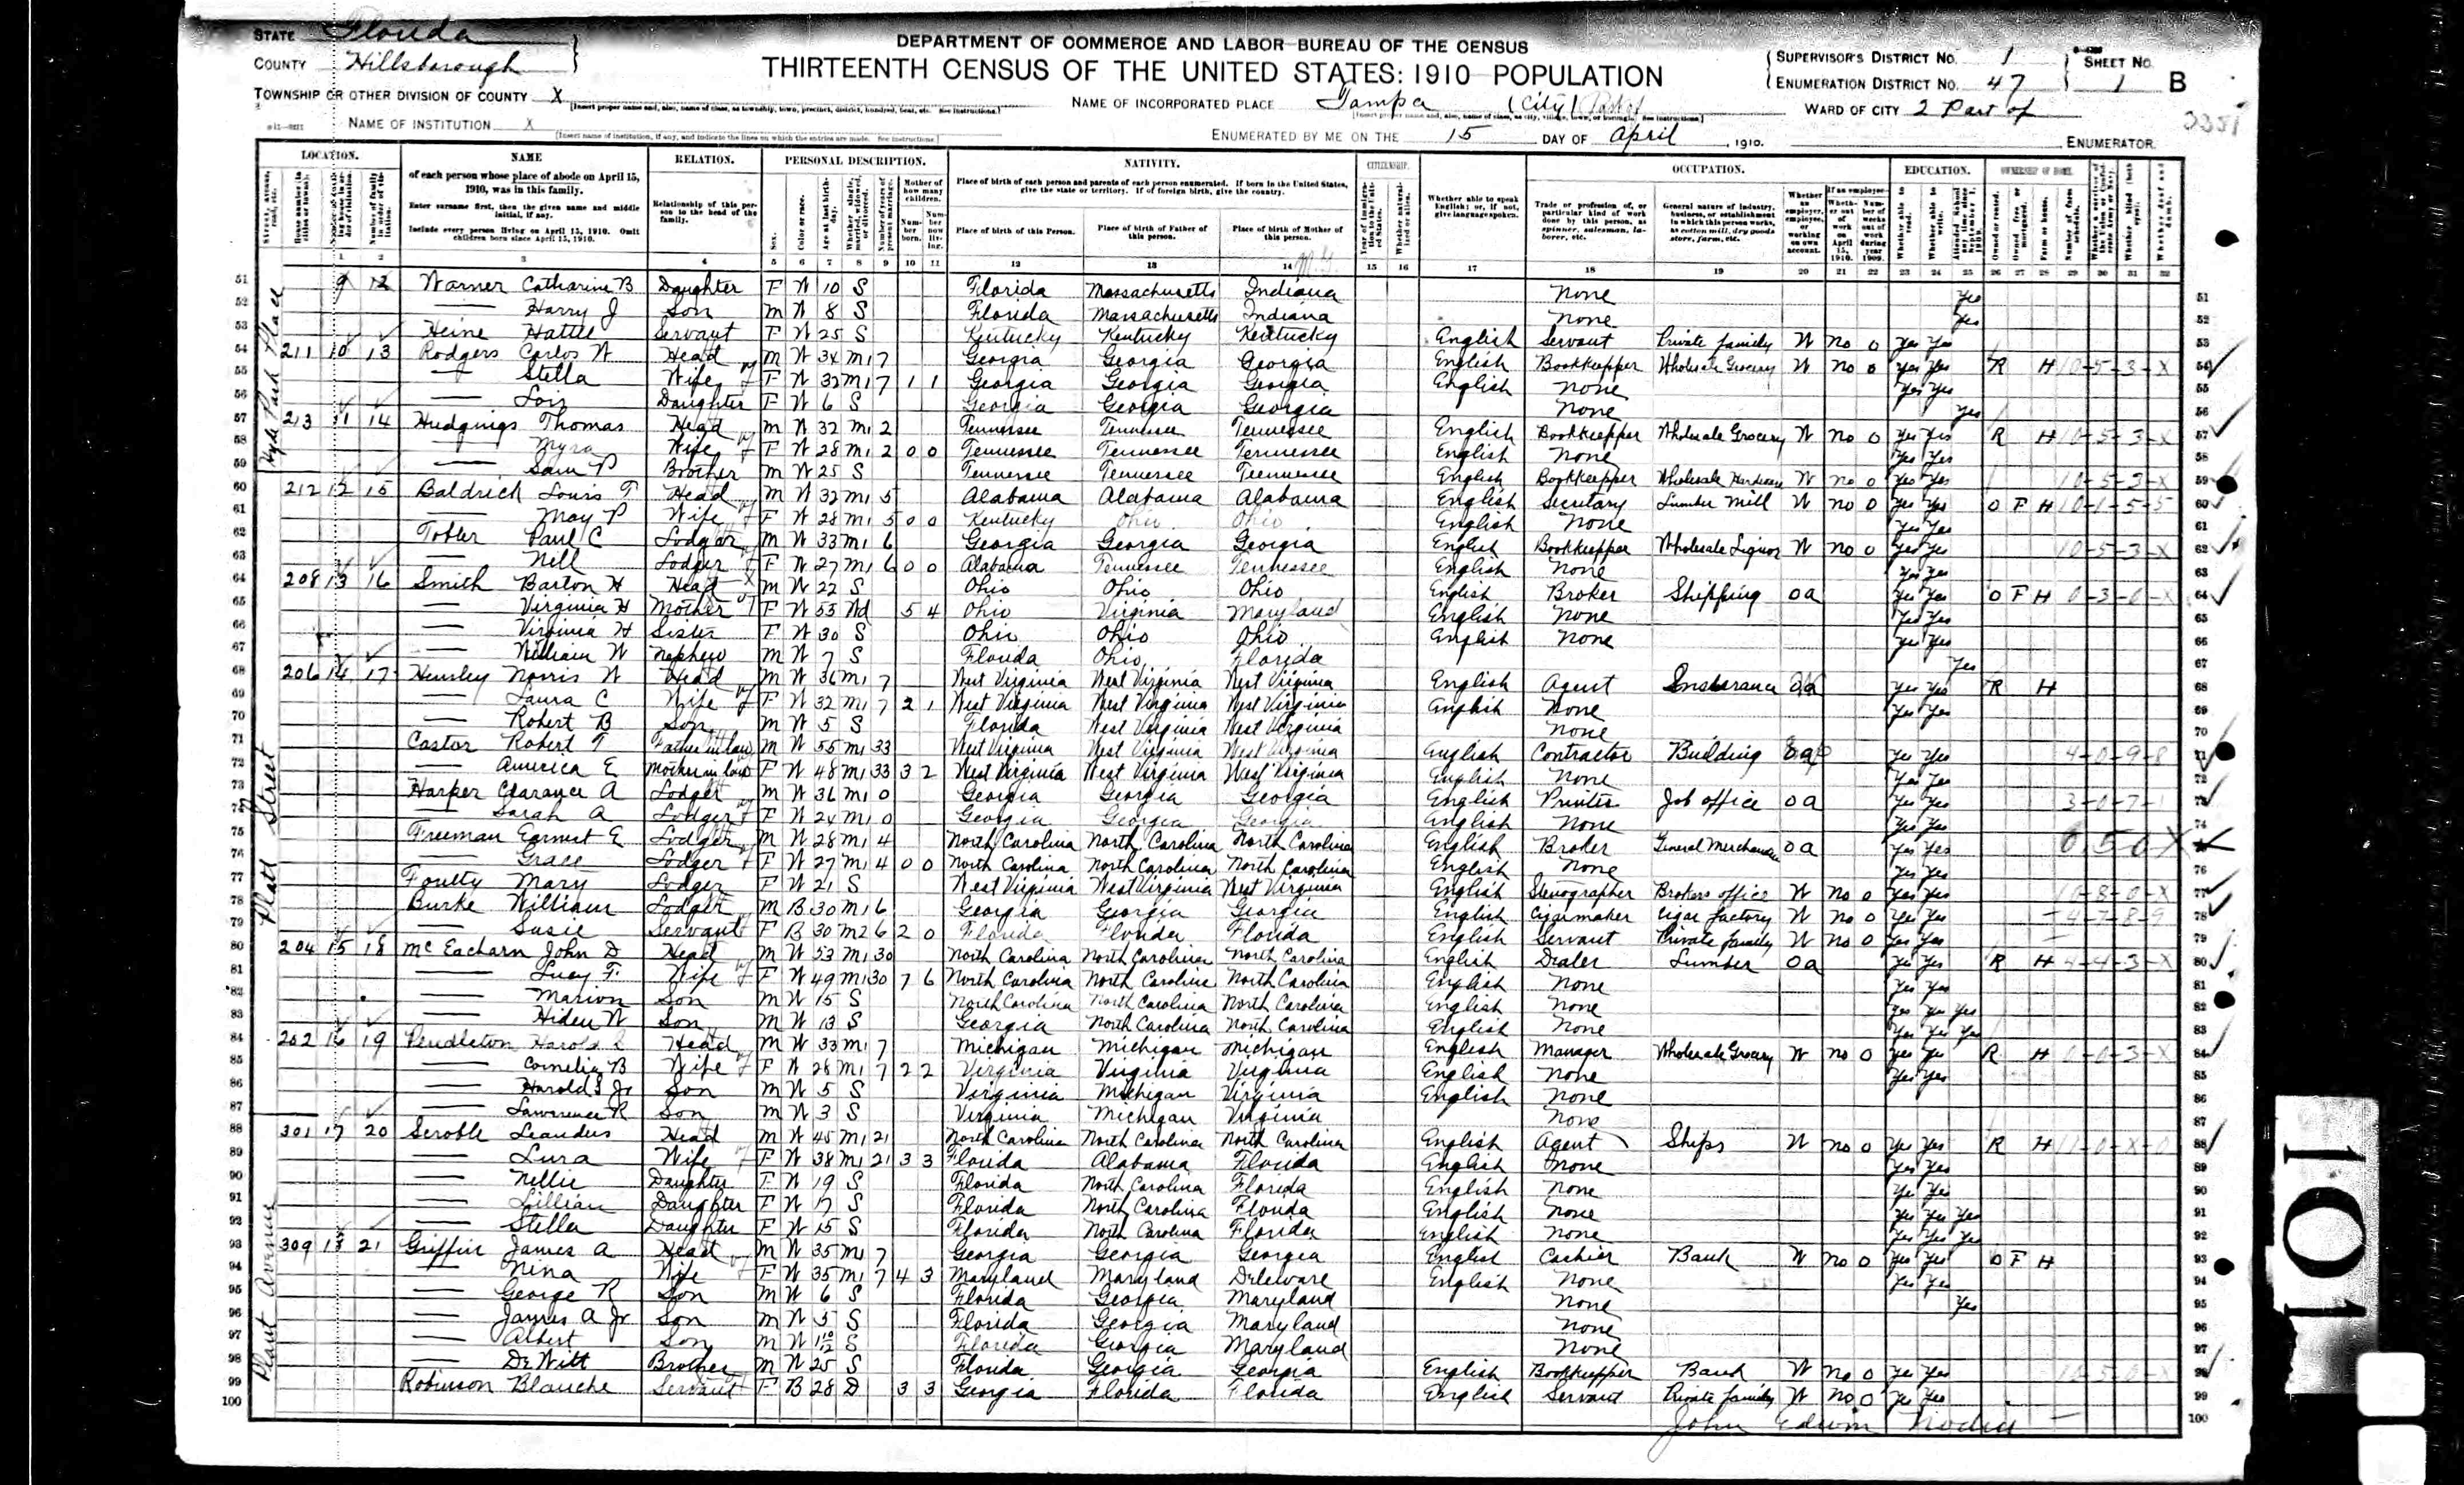 STATE Florida
COUNTY Hillsborough
TOWNSHIP OR OTHER DIVISION OF COUNTY X
NAME OF INSTITUTION X
DEPARTMENT OF COMMERCE AND LABOR—BUREAU OF THE CENSUS
THIRTEENTH CENSUS OF THE UNITED STATES: 1910—POPULATION
NAME OF INCORPORATED PLACE Tampa (City)
ENUMERATED BY ME ON THE 15 DAY OF April, 1910. ENUMERATOR
SUPERVISOR'S DISTRICT NO. 1
ENUMERATION DISTRICT NO. 47
SHEET NO. 1 B
WARD OF CITY 2 Part of
LOCATION. NAME RELATION. PERSONAL DESCRIPTION. NATIVITY. CITIZENSHIP. OCCUPATION. EDUCATION. OWNERSHIP OF HOME.
of each person whose place of abode on April 15, 1910, was in this family.
Enter surname first, then the given name and middle initial, if any.
Include every person living on April 15, 1910. Omit children born since April 15, 1910.
Relationship of this person to the head of the family.
Place of birth of each person and parents of each person enumerated. If born in the United States, give the state or territory. If of foreign birth, give the country.
Place of birth of this Person. Place of birth of Father of this person. Place of birth of Mother of this person.
Whether able to speak English; or, if not, give language spoken.
Trade or profession of, or particular kind of work done by this person, as spinner, salesman, laborer, etc.
General nature of industry, business, or establishment in which this person works, as cotton mill, dry goods store, farm, etc.
Hyde Park Place
51 9 12 Warner Catharine B Daughter F W 10 S Florida Massachusetts Indiana None Yes 51
52 — Harry J Son M W 8 S Florida Massachusetts Indiana None Yes 52
53 Heine Hattie Servant F W 25 S Kentucky Kentucky Kentucky English Servant Private family W No 0 Yes Yes 53
54 211 10 13 Rodgers Carlos W Head M W 34 M1 7 Georgia Georgia Georgia English Bookkeeper Wholesale Grocery W No 0 Yes Yes R H 10-5-3-X 54
55 — Stella Wife F W 32 M1 7 1 1 Georgia Georgia Georgia English None Yes Yes 55
56 — Lois Daughter F W 6 S Georgia Georgia Georgia None Yes 56
57 213 11 14 Hudgings Thomas Head M W 32 M1 2 Tennessee Tennessee Tennessee English Bookkeeper Wholesale Grocery W No 0 Yes Yes R H 10-5-3-X 57
58 — Myra Wife F W 28 M1 2 0 0 Tennessee Tennessee Tennessee English None Yes Yes 58
59 — Sam P Brother M W 25 S Tennessee Tennessee Tennessee English Bookkeeper Wholesale Hardware W No 0 Yes Yes 10-5-3-X 59
60 212 12 15 Baldrick Louis T Head M W 32 M1 5 Alabama Alabama Alabama English Secretary Lumber Mill W No 0 Yes Yes O F H 10-1-5-5 60
61 — May P Wife F W 28 M1 5 0 0 Kentucky Ohio Ohio English None Yes Yes 61
62 Tobler Paul C Lodger M W 33 M1 6 Georgia Georgia Georgia English Bookkeeper Wholesale Liquor W No 0 Yes Yes 10-5-3-X 62
63 — Nell Lodger F W 27 M1 6 0 0 Alabama Tennessee Tennessee English None Yes Yes 63
Platt Street
64 208 13 16 Smith Barton H Head M W 22 S Ohio Ohio Ohio English Broker Shipping OA Yes Yes O F H 0-3-0-X 64
65 — Virginia H Mother F W 53 Wd 5 4 Ohio Virginia Maryland English None Yes Yes 65
66 — Virginia H Sister F W 30 S Ohio Ohio Ohio English None Yes Yes 66
67 — William W Nephew M W 7 S Florida Ohio Florida Yes 67
68 206 14 17 Hensley Norris W Head M W 36 M1 7 West Virginia West Virginia West Virginia English Agent Insurance OA Yes Yes R H 68
69 — Laura C Wife F W 32 M1 7 2 1 West Virginia West Virginia West Virginia English None Yes Yes 69
70 — Robert B Son M W 5 S Florida West Virginia West Virginia None 70
71 Castor Robert T Father in law M W 55 M1 33 West Virginia West Virginia West Virginia English Contractor Building Yes Yes 4-0-9-8 71
72 — America E Mother in law F W 48 M1 33 3 2 West Virginia West Virginia West Virginia English None Yes Yes 72
73 Harper Clarance A Lodger M W 36 M1 0 Georgia Georgia Georgia English Printer Job office OA Yes Yes 3-0-7-1 73
74 — Sarah A Lodger F W 24 M1 0 Georgia Georgia Georgia English None Yes Yes 74
75 Freeman Earnest E Lodger M W 28 M1 4 North Carolina North Carolina North Carolina English Broker General Merchandise OA Yes Yes 0 5 0 X
76 — Grace Lodger F W 27 M1 4 0 0 North Carolina North Carolina North Carolina English None Yes Yes 76
77 Foulty Mary Lodger F W 21 S West Virginia West Virginia West Virginia English Stenographer Brokers office W No 0 Yes Yes 10-8-0-X 77
78 Burke William Lodger M B 30 M1 6 Georgia Georgia Georgia English Cigarmaker Cigar factory W No 0 Yes Yes 4-7-8-9 78
79 — Susie Servant F B 30 M2 6 2 0 Florida Florida Florida English Servant Private family W No 0 Yes Yes 79
80 204 15 18 McEacharn John D Head M W 53 M1 30 North Carolina North Carolina North Carolina English Dealer Lumber OA Yes Yes R H 4-4-3-X 80
81 — Lucy F. Wife F W 49 M1 30 7 6 North Carolina North Carolina North Carolina English None Yes Yes 81
82 — Marion Son M W 15 S North Carolina North Carolina North Carolina English None Yes Yes Yes 82
83 — Hiden W Son M W 13 S Georgia North Carolina North Carolina English None Yes Yes Yes 83
84 202 16 19 Pendleton Harold S Head M W 33 M1 7 Michigan Michigan Michigan English Manager Wholesale Grocery W No 0 Yes Yes R H 0-0-3-X 84
85 — Cornelia B Wife F W 28 M1 7 2 2 Virginia Virginia Virginia English None Yes Yes 85
86 — Harold S Jr Son M W 5 S Virginia Michigan Virginia English None 86
87 — Lawrence R Son M W 3 S Virginia Michigan Virginia None 87
Plant Avenue
88 301 17 20 Scroble Leandus Head M W 45 M1 21 North Carolina North Carolina North Carolina English Agent Ships W No 0 Yes Yes R H 11-0-X-0 88
89 — Lura Wife F W 38 M1 21 3 3 Florida Alabama Florida English None Yes Yes 89
90 — Nellie Daughter F W 19 S Florida North Carolina Florida English None Yes Yes 90
91 — Lillian Daughter F W 17 S Florida North Carolina Florida English None Yes Yes Yes 91
92 — Stella Daughter F W 15 S Florida North Carolina Florida English None Yes Yes Yes 92
93 309 18 21 Griffin James A Head M W 35 M1 7 Georgia Georgia Georgia English Cashier Bank W No 0 Yes Yes O F H 93
94 — Nina Wife F W 35 M1 7 4 3 Maryland Maryland Delaware English None Yes Yes 94
95 — George R Son M W 6 S Florida Georgia Maryland None Yes 95
96 — James A Jr Son M W 5 S Florida Georgia Maryland None 96
97 — Albert Son M W 1 10/12 S Florida Georgia Maryland None 97
98 — DeWitt Brother M W 25 S Florida Georgia Georgia English Bookkeeper Bank W No 0 Yes Yes 98
99 Robinson Blanche Servant F B 28 D 3 3 Georgia Florida Florida English Servant Private family W No 0 Yes Yes 99
100 John Edwin 100
101